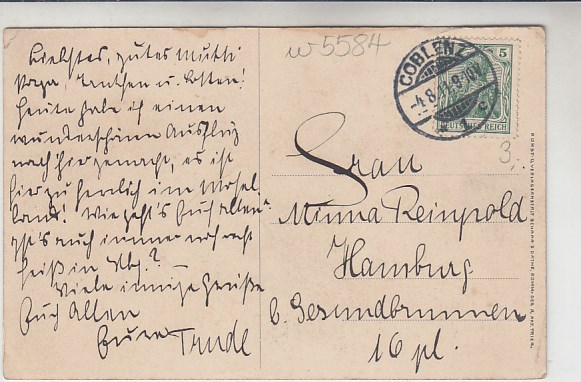 Liebstes, gutes Mutti
Papa, Tanthen u. Lotten!
Heute habe ich einen
wunderschönen Ausflug
nach hier gemacht, es ist
hier zu herrlich im Mosel
land! Wie geht's Euch allen
Ist's auch immer noch recht
heiß in Hbg.? –
Viele innige Grüße
Euch Allen
Eure Trude
w5584
COBLENZ
-4.8.11.8-9
1 c
5
DEUTSCHES REICH
3,-
Frau
Minna Reinpold
Hamburg
b. Gesundbrunnen
16 pl.